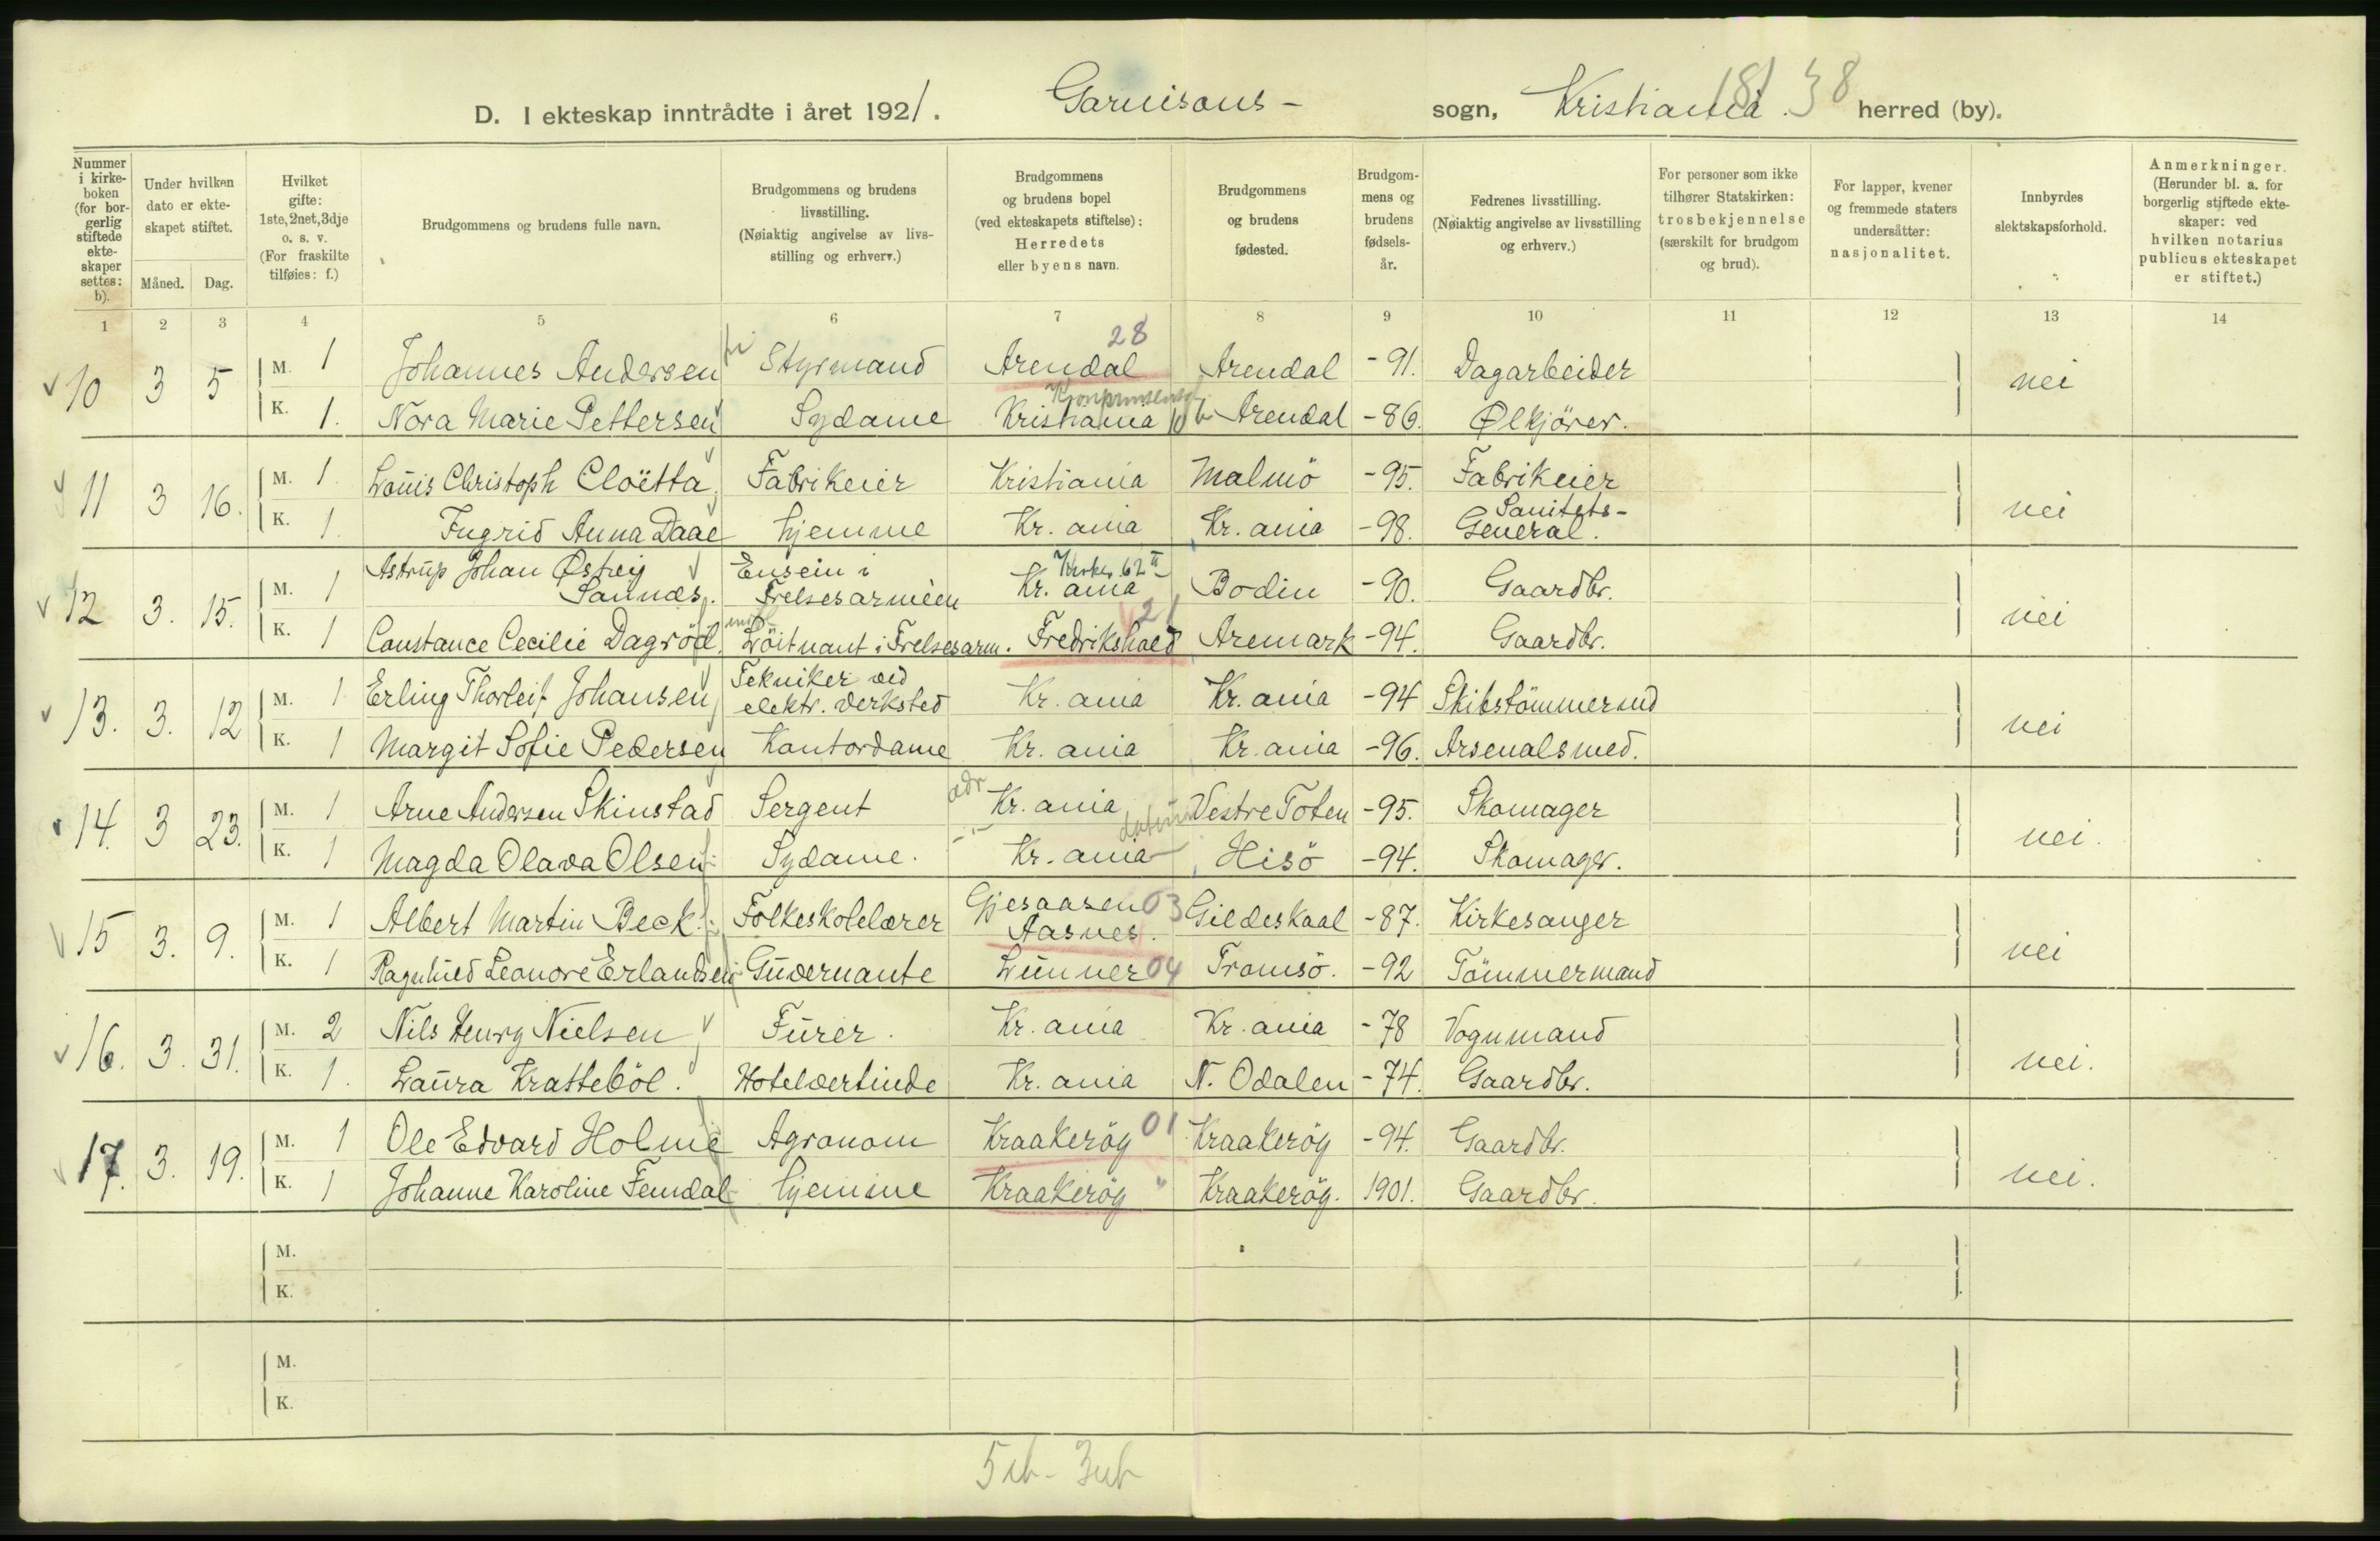 D. I ekteskap inntrådte i året 1921. Garnisons- sogn, Kristiania. 181 38 herred (by).
Nummer i kirke-boken (for bor-gerlig stiftede ekte-skaper settes: b).
Under hvilken dato er ekte-skapet stiftet.
Måned. Dag.
Hvilket gifte: 1ste, 2net, 3dje o. s. v. (For fraskilte tilføies: f.)
Brudgommens og brudens fulle navn.
Brudgommens og brudens livsstilling. (Nøiaktig angivelse av livs-stilling og erhverv.)
Brudgommens og brudens bopel (ved ekteskapets stiftelse): Herredets eller byens navn.
Brudgommens og brudens fødested.
Brudgom-mens og brudens fødsels-år.
Fedrenes livsstilling. (Nøiaktig angivelse av livsstilling og erhverv.)
For personer som ikke tilhører Statskirken: trosbekjennelse (særskilt for brudgom og brud).
For lapper, kvener og fremmede staters undersåtter: nasjonalitet.
Innbyrdes slektskapsforhold.
Anmerkninger. (Herunder bl. a. for borgerlig stiftede ekte-skaper: ved hvilken notarius publicus ekteskapet er stiftet.)
1 2 3 4 5 6 7 8 9 10 11 12 13 14
28
10 3 5 M. 1 Johannes Andersen Styrmand Arendal Arendal -91. Dagarbeider nei
Kronprinsens
K. 1. Nora Marie Pettersen Sydame Kristiania 10 Arendal -86. Ølkjörer.
11 3 16. M. 1. Louis Christoph Cloëtta Fabrikeier Kristiania Malmö -95. Fabrikeier nei
K. 1. Ingrid Anna Daae hjemme Kr. ania Kr. ania -98. Sanitets-General.
12 3. 15. M. 1 Astrup Johan Østrey Sannæs. Ensein i Frelsesarmeen Kirkev. 62 II Kr. ania Bodin -90. Gaardbr. nei
21
K. 1 Constance Cecilie Dagröd. Löitnant i Frelsesarm. Fredrikshald Aremark -94. Gaardbr.
13. 3. 12 M. 1 Erling Thorleif Johansen Tekniker ved elektr. verksted Kr. ania Kr. ania -94 Skibstömmermd nei
K. 1 Margit Sofie Pedersen Kontordame Kr. ania Kr. ania -96. Arsenalsmed.
14. 3 23. M. 1 Arne Andersen Skinstad Sergent adr Kr. ania Vestre Toten -95. Skomager nei.
K. 1 Magda Olava Olsen Sydame. -"- Kr. ania Hisö -94. Skomager.
15 3. 9. M. 1 Albert Martin Beck. Folkeskolelærer Gjesaasen 03 Aasnes. Gildeskaal -87. Kirkesanger nei
K. 1 Ragnhild Leonore Erlandsen Guvernante Lunner 04 Tromsö. -92 Tömmermand
16. 3. 31. M. 2 Nils Henry Nielsen Furer. Kr. ania Kr. ania -78 Vognmand nei.
K. 1. Laura Kratteböl. Hotelvertinde Kr. ania N. Odalen -74. Gaardbr.
17. 3. 19. M. 1 Ole Edvard Holme Agronom Kraakeröy 01 Kraakeröy -94. Gaardbr. nei.
K. 1 Johanne Karoline Femdal hjemme Kraakeröy " Kraakeröy. 1901. Gaardbr.
M.
K.
M.
K.